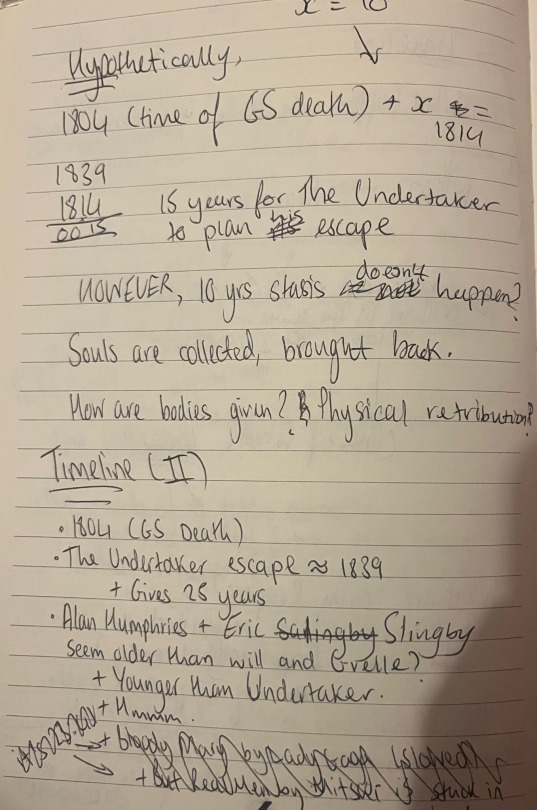 x = 10
Hypothetically,
1804 (time of GS death) + x =
1814
1839
1814 15 years for The Undertaker
0015 to plan his escape
HOWEVER, 10 yrs stasis doesn't happen?
Souls are collected, brought back.
How are bodies given? Physical retribution?
Timeline (II)
• 1804 (GS Death)
• The Undertaker escape ≈ 1839
+ Gives 25 years
• Alan Humphries + Eric Slingby
seem older than will and Grelle?
+ Younger than Undertaker.
+ Hmmm.
+ bloody Mary by Lady Gaga (slowed)
+ But Real Men by Mitski is stuck in